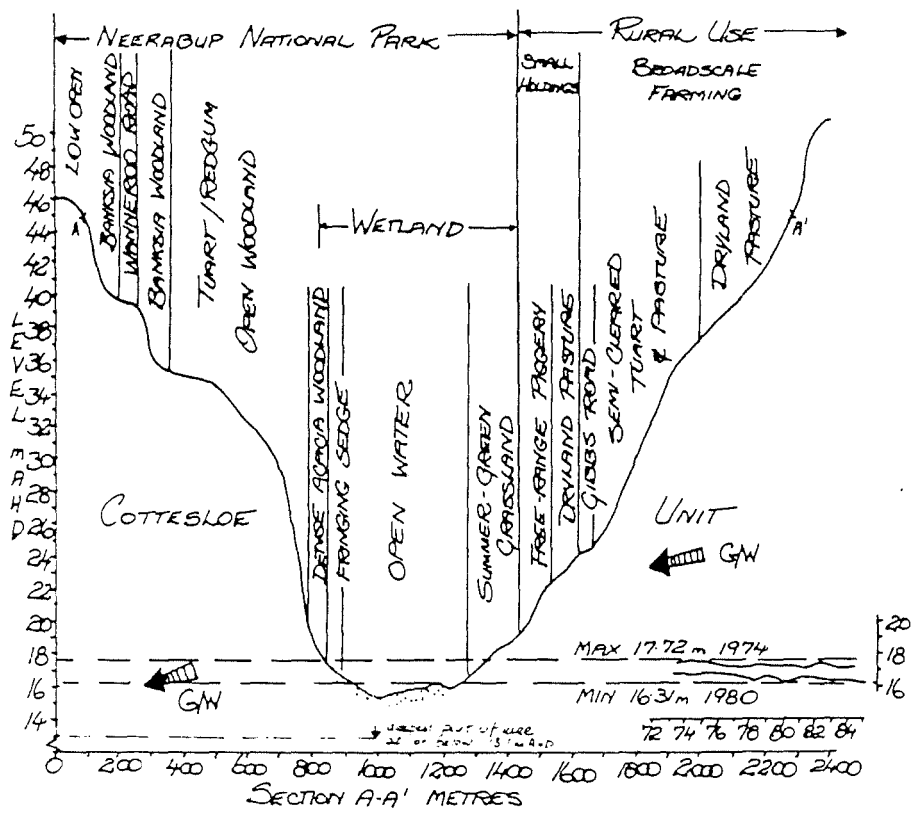 NEERABUP NATIONAL PARK
RURAL USE
SMALL HOLDINGS
BROADSCALE
FARMING
LOW OPEN
BANKSIA WOODLAND
WANNEROO ROAD
BANKSIA WOODLAND
TUART/REDGUM
OPEN WOODLAND
WETLAND
DENSE ACACIA WOODLAND
FRINGING SEDGE
OPEN WATER
SUMMER-GREEN
GRASSLAND
FREE-RANGE PIGGERY
DRYLAND PASTURE
GIBBS ROAD
SEMI-CLEARED
TUART
& PASTURE
DRYLAND
PASTURE
A
A'
LEVEL mAHD
50
48
46
44
42
40
38
36
34
32
30
28
26
24
22
20
18
16
14
COTTESLOE
UNIT
G/W
G/W
MAX 17.72 m 1974
MIN 16.31m 1980
20
18
16
72 74 76 78 80 82 84
0 200 400 600 800 1000 1200 1400 1600 1800 2000 2200 2400
SECTION A-A' METRES